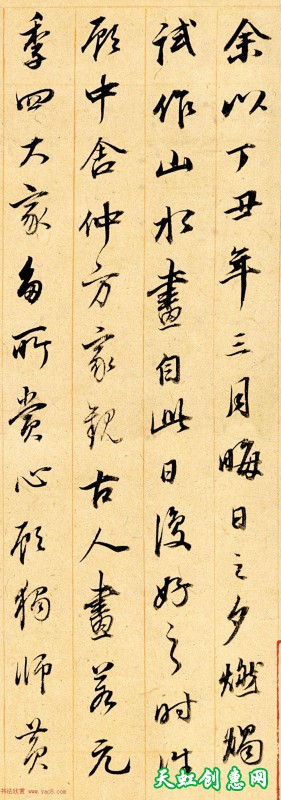 余以丁丑年三月晦日之夕燃燭
试作山水畫自此日復好之时往
顾中舍仲方家觀古人畫若元
季四大家多所赏心顾獨师黄
书法欣赏 www.yac8.com
天虹创意网